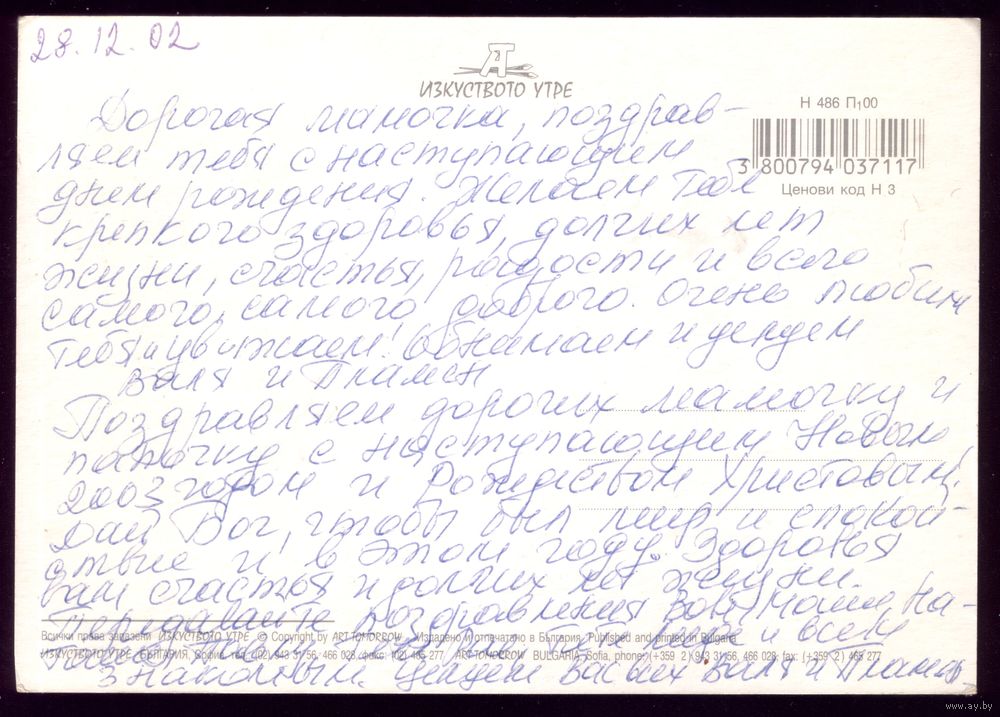 28.12.02
ИЗКУСТВОТО УТРЕ
Н 486 П100
3 800794 037117
Ценови код Н 3
Дорогая мамочка, поздрав-
ляем тебя с наступающим
днем рождения. Желаем тебе
крепкого здоровья, долгих лет
жизни, счастья, радости и всего
самого, самого доброго. Очень любим
тебя и уважаем! Обнимаем и целуем
Валя и Пламен
Поздравляем дорогих мамочку и
папочку с наступающим Новым
2003 годом и Рождеством Христовым!
Дай Бог, чтобы был мир и спокой-
ствие и в этом году. Здоровья
Вам счастья и долгих лет жизни.
Передавайте поздравления
и всем
знакомым. Целуем Вас Валя и Пламен
Всички права запазени ИЗКУСТВОТО УТРЕ © Copyright by ART TOMORROW Издадено и отпечатано в България Published and printed in Bulgaria
ИЗКУСТВОТО УТРЕ, БЪЛГАРИЯ, София, тел. (02) 943 31 56, 466 028, факс: (02) 465 277 ART TOMORROW BULGARIA, Sofia, phone: (+359 2) 943 31 56, 466 028; fax: (+359 2) 465 277
www.ay.by